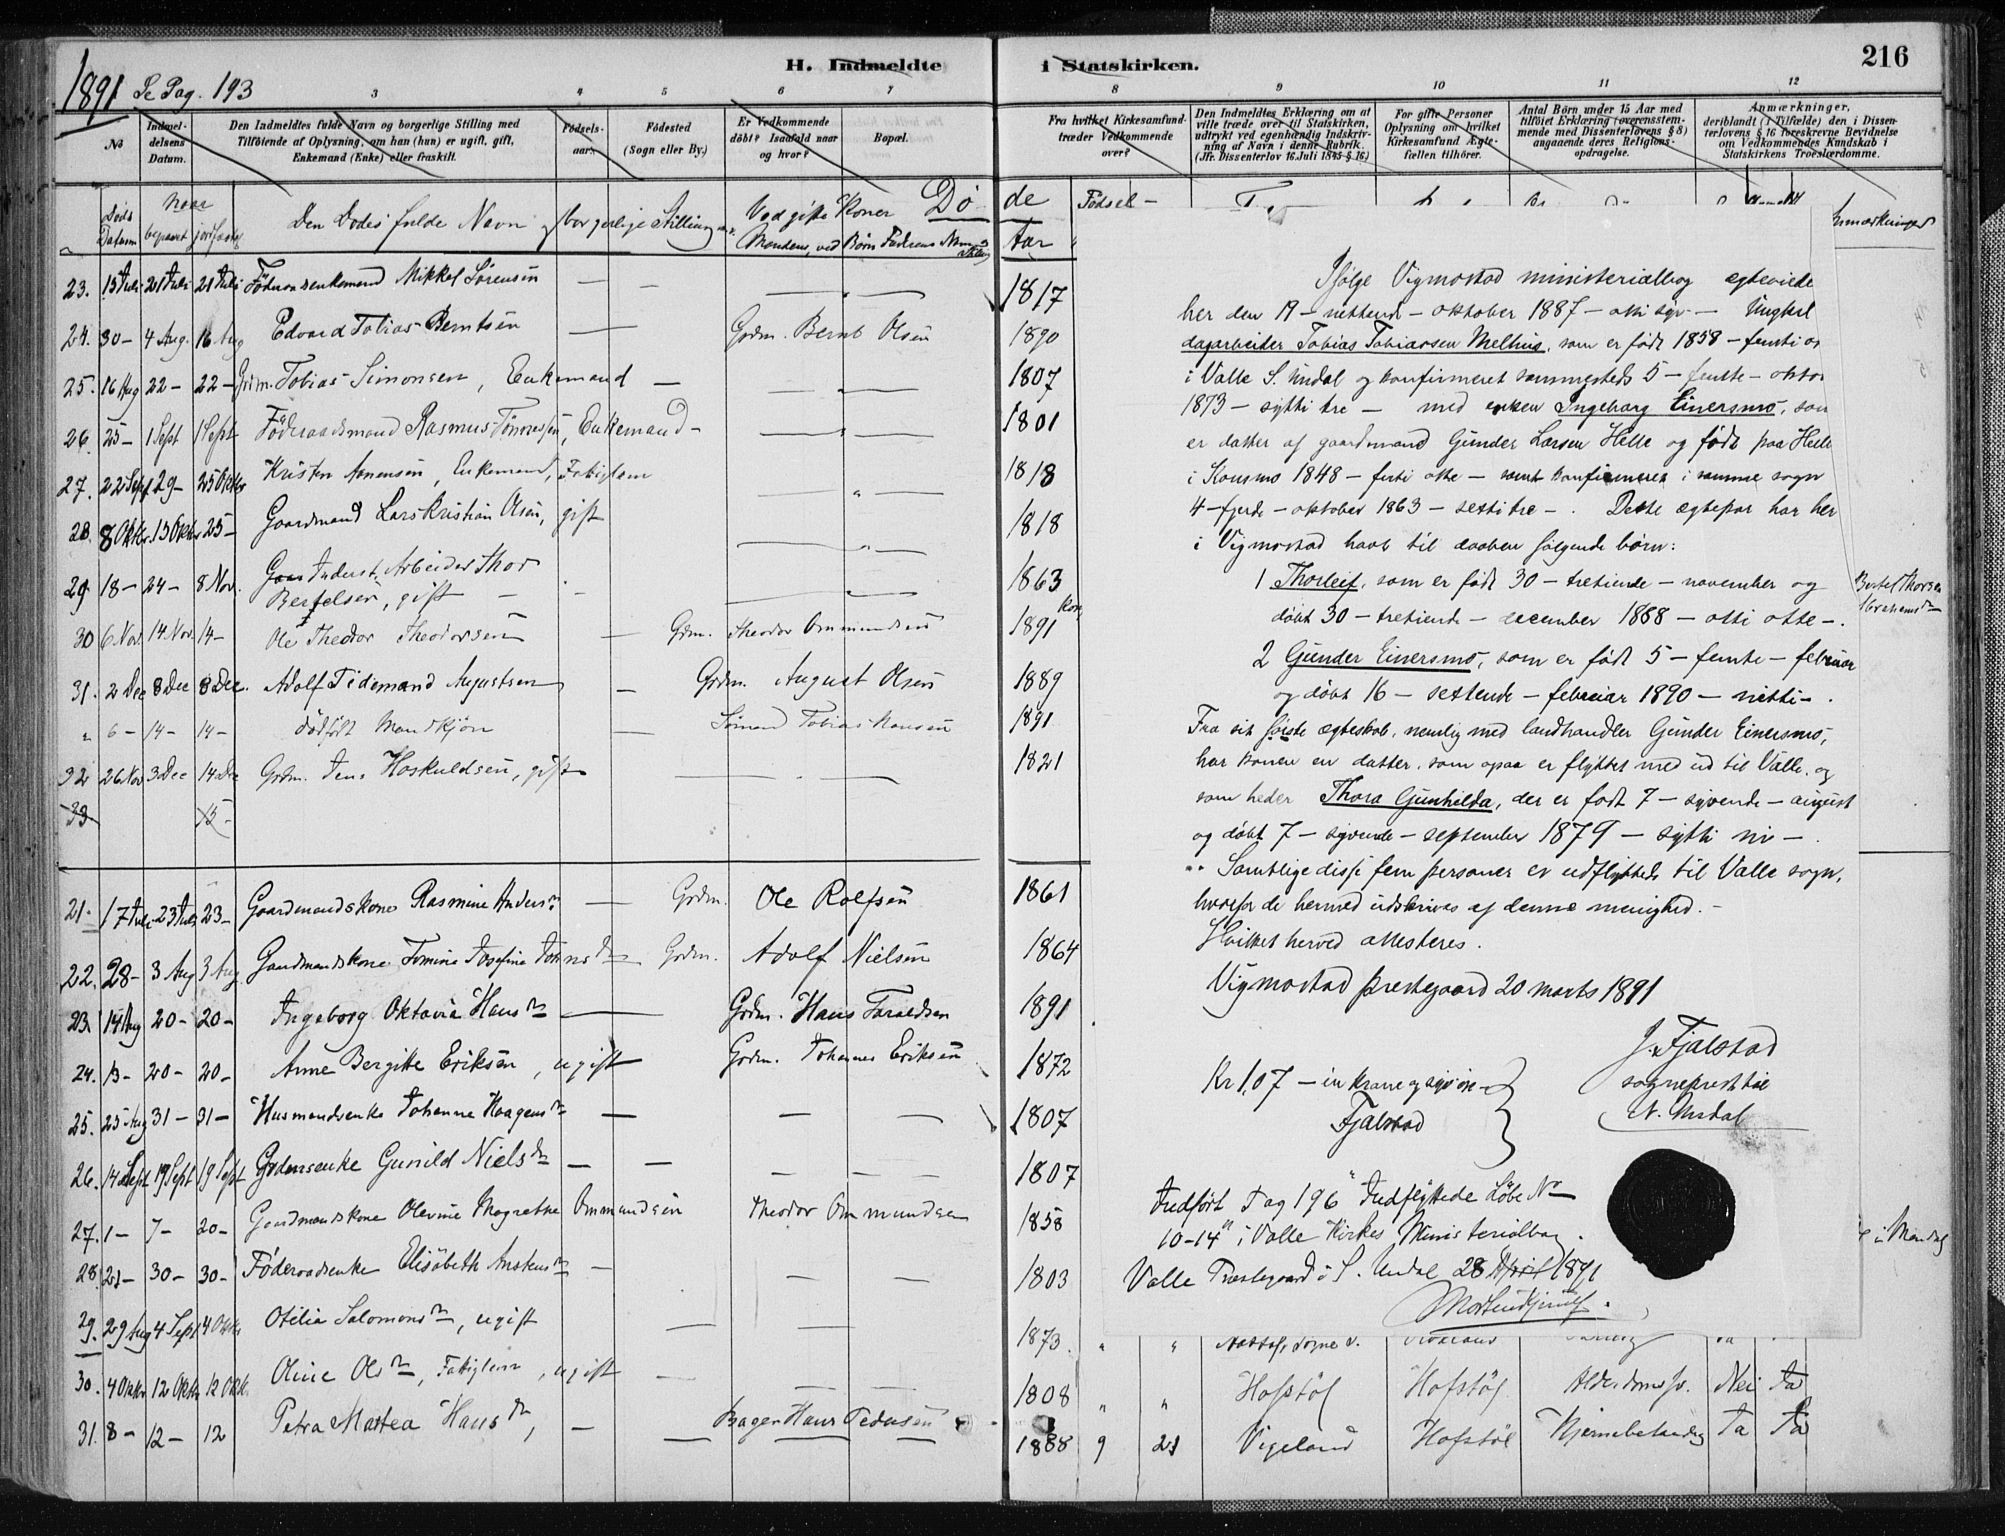 1891 Se Pag. 193
H. Indmeldte i Statskirken.
216
3 4 5 6 7 8 9 10 11 12
No
Indmeldelsens Datum.
Den Indmeldtes fulde Navn og borgerlige Stilling med
Tilföiende af Oplysning, om han (hun) er ugift, gift,
Enkemand (Enke) eller fraskilt.
Födselsaar.
Födested
(Sogn eller By.)
Er Vedkommende
döbt? Isaafald naar
og hvor?
Bopæl.
Fra hvilket Kirkesamfund
træder Vedkommende
over?
Den Indmeldtes Erklæring om at
ville træde over til Statskirken,
udtrykt ved egenhændig Indskrivning af Navn i denne Rubrik.
(Jfr. Dissenterlov 16 Juli 1845 § 16)
For gifte Personer
Oplysning om hvilket
Kirkesamfund Ægtefællen tilhörer.
Antal Börn under 15 Aar med
tilföiet Erklæring (overensstemmende med Dissenterlovens § 8)
angaaende deres Religionsopdragelse.
Anmærkninger,
deriblandt (i Tilfælde) den i Dissenterlovens § 16 foreskrevne Bevidnelse
om Vedkommendes Kundskab i
Statskirkens Troeslærdomme.
Døds Datum
Naar begravet jordfæstet
Den Dødes fulde Navn og borgerlige Stilling
Ved gifte Koner Mandens, ved Børn Faderens Navn
Døde
Aar
Fødsel -
Anmærkninger
23. 15 Juli 21 Juli 21 Juli Föderaadsenkemand Mikkel Sörensen — — — " — 1817
24. 30 - 4 Aug. 16 Aug Edvard Tobias Berntsen — Grdm. Bernt Olsen 1890
25. 16 Aug 22 - 22 - Grdm. Tobias Simonsen, Enkemand — — " — 1807
26. 25 - 1 Sept 1 Sept Föderaadsmand Rasmus Tönnessen, Enkemand - — " — 1801
27. 22 Sept 29 - 25 Oktbr Kristen Aanensen, Enkemand, Fattiglem — " — 1818
28. 8 Oktbr. 15 Oktbr 25 - Gaardmand Lars Kristian Olsen, gift — " — 1818
29 18 - 24 - 8 Nov. Inderst. Arbeider Thor
Bertelsen, gift — — 1863
Bertel Thorsen
30 6 Nov. 14 Nov. 14 - Ole Theodor Theodorsen — Grdm. Theodor Ommundsen 1891
31. 2 Dec 8 Dec 8 Dec. Adolf Tidemand Augustsen — Grdm. August Olsen 1889
" 6 - 14 - 14 - dödfödt Mandkjön — Sömand Tobias Hansen 1891
32 26 Nov 3 Dec 14 Dec Grdm. Jens Hoskuldsen, gift — " — 1821
33 15 -
21. 17 Juli 23 Juli 23 - Gaardmandskone Rasmine Andersdtr — Grdm. Ole Rolfsen 1861
22. 28 - 3 Aug 3 Aug. Gaardmandskone Tomine Josefine Johnsdtr — Grdm. Adolf Nielsen 1864
23. 14 Aug 20 - 20 - Ingeborg Oktavia Hansdtr — Grdm. Hans Taraldsen 1891
24. 13 - 20 - 20 - Anne Bergitte Eriksen, ugift Grdm. Johannes Eriksen 1872
25. 25 Aug 31 - 31 - Husmandsenke Johanne Haagensdtr — — — 1807
26. 14 Sept 19 Sept 19 Sept Grdmsenke Gunild Nielsdtr — — — — 1807
27. 1 - 7 - 20 - Gaardmandskone Olevine Magrethe Ommundsen Theodor Ommundsen 1858
28 21 - 30 - 30 - Föderaadsenke Elisabeth Anstensdtr — — — 1803
i Mandal
29. 29 Aug 4 Sept 4 Oktbr Otilia Salomonsdtr, ugift — — 1873. " "
30. 4 Oktbr 12 Oktbr 12 Oktbr Oline Olsdtr, Fattiglem, ugift — — — 1808 " " Hofstöl Hofstöl Alderdomssv. Nei Ja
31. 8 - 12 - 12 Petra Mathea Hansdtr, — — Bager Hans Pedersen — 1888 9 21 Vigeland Hofstöl Hjernebetændelse Ja Ja
Ifølge Vigmostad ministerialbog egteviede
her den 19 - nittende - oktober 1887 - otti syv - Ungkarl
dagarbeider Tobias Tobiassen Melhus, som er født 1858 - femti ot
i Valle S. Undal og konfirmeret sammesteds 5 - femte - oktober
1873 - sytti tre - med enken Ingeborg Einersmo, som
er datter af gaardmand Gunder Larsen Helle og født paa Helle
i Konsmo 1848 - firti otte - samt konfirmeret i samme sogn
4 - fjerde - oktober 1863 - setti tre - . Dette egtepar har her
i Vigmostad havt til daaben følgende børn:
1 Thorleif, som er født 30 - tretiende - november og
døbt 30 - tretiende - december 1888 - otti otte - .
2 Gunder Einersmo, som er født 5 - femte - februar
og døbt 16 - sekstende - februar 1890 - nitti - .
Fra sit første egteskab, nemlig med landhandler Gunder Einersmo,
har konen en datter, som ogsaa er flyttet med ud til Valle, og
som heder Thora Gunhilda, der er født 7 - syvende - august
og døbt 7 - syvende - september 1879 - sytti ni - .
Samtlige disse fem personer er udflyttede til Valle sogn,
hvorfor de hermed udskrives af denne menighed. -
Hvilket herved attesteres.
Vigmostad prestegaard 20 marts 1891
J. Fjalstad
sogneprest til
N. Undal
Kr 1,07 - en krone og syv øre -
Fjalstad
Indført Pag 196 Indflyttede Løbe No
10-14 i Valle Kirkes Ministerialbog.
Valle Præstegaard i S. Undal 28 April 1891